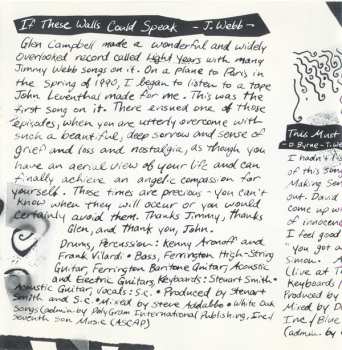 If These Walls Could Speak - J. Webb -
Glen Campbell made a wonderful and widely
overlooked record called Light Years with many
Jimmy Webb songs on it. On a plane to Paris in
the Spring of 1990, I began to listen to a tape
John Leventhal made for me. This was the
first song on it. There ensued one of those
episodes, when you are utterly overcome with
such a beautiful, deep sorrow and sense of
grief and loss and nostalgia, as though you
have an aerial view of your life and can
finally achieve an angelic compassion for
yourself. These times are precious - you can't
know when they will occur or you would
certainly avoid them. Thanks Jimmy, thanks
Glen, and thank you, John.
Drums, Percussion: Kenny Aronoff and
Frank Vilardi • Bass, Ferrington High-String
Guitar, Ferrington Baritone Guitar, Acoustic
and Electric Guitars, Keyboards: Steuart Smith •
Acoustic Guitar, Vocals: S.C. • Produced by Steuart
Smith and S.C. • Mixed by Steve Addabbo • White Oak
Songs (admin. by PolyGram International Publishing, Inc.)
Seventh Son Music (ASCAP)
This Must
- D. Byrne - T. We
I hadn't lis
of this song
Making Sen
out. David
come up wi
of innocen
I feel good
"you got a
Simon. A
(live at T
Keyboards
Produced by
Mixed by D
Inc./Blue
(admin. by